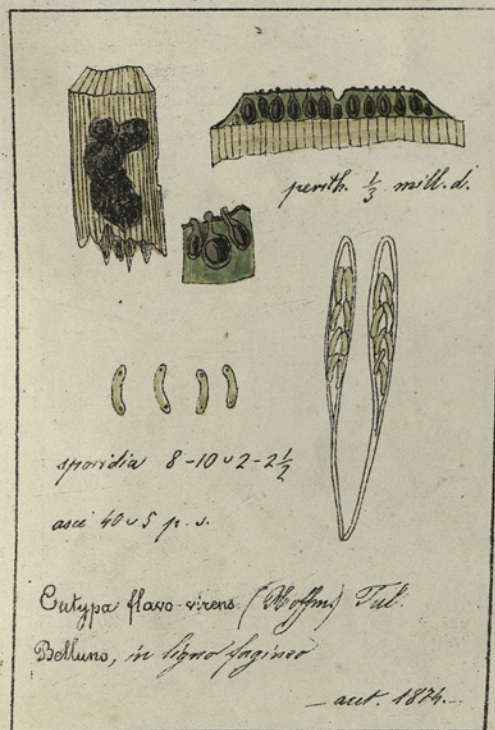 perith. ⅓ mill. d.
sporidia 8-10 ᴗ 2-2½
asci 40 ᴗ 5 p. s.
Eutypa flavo-virens (Hoffm) Tul.
Belluno, in ligno fagineo
— aut. 1874. —